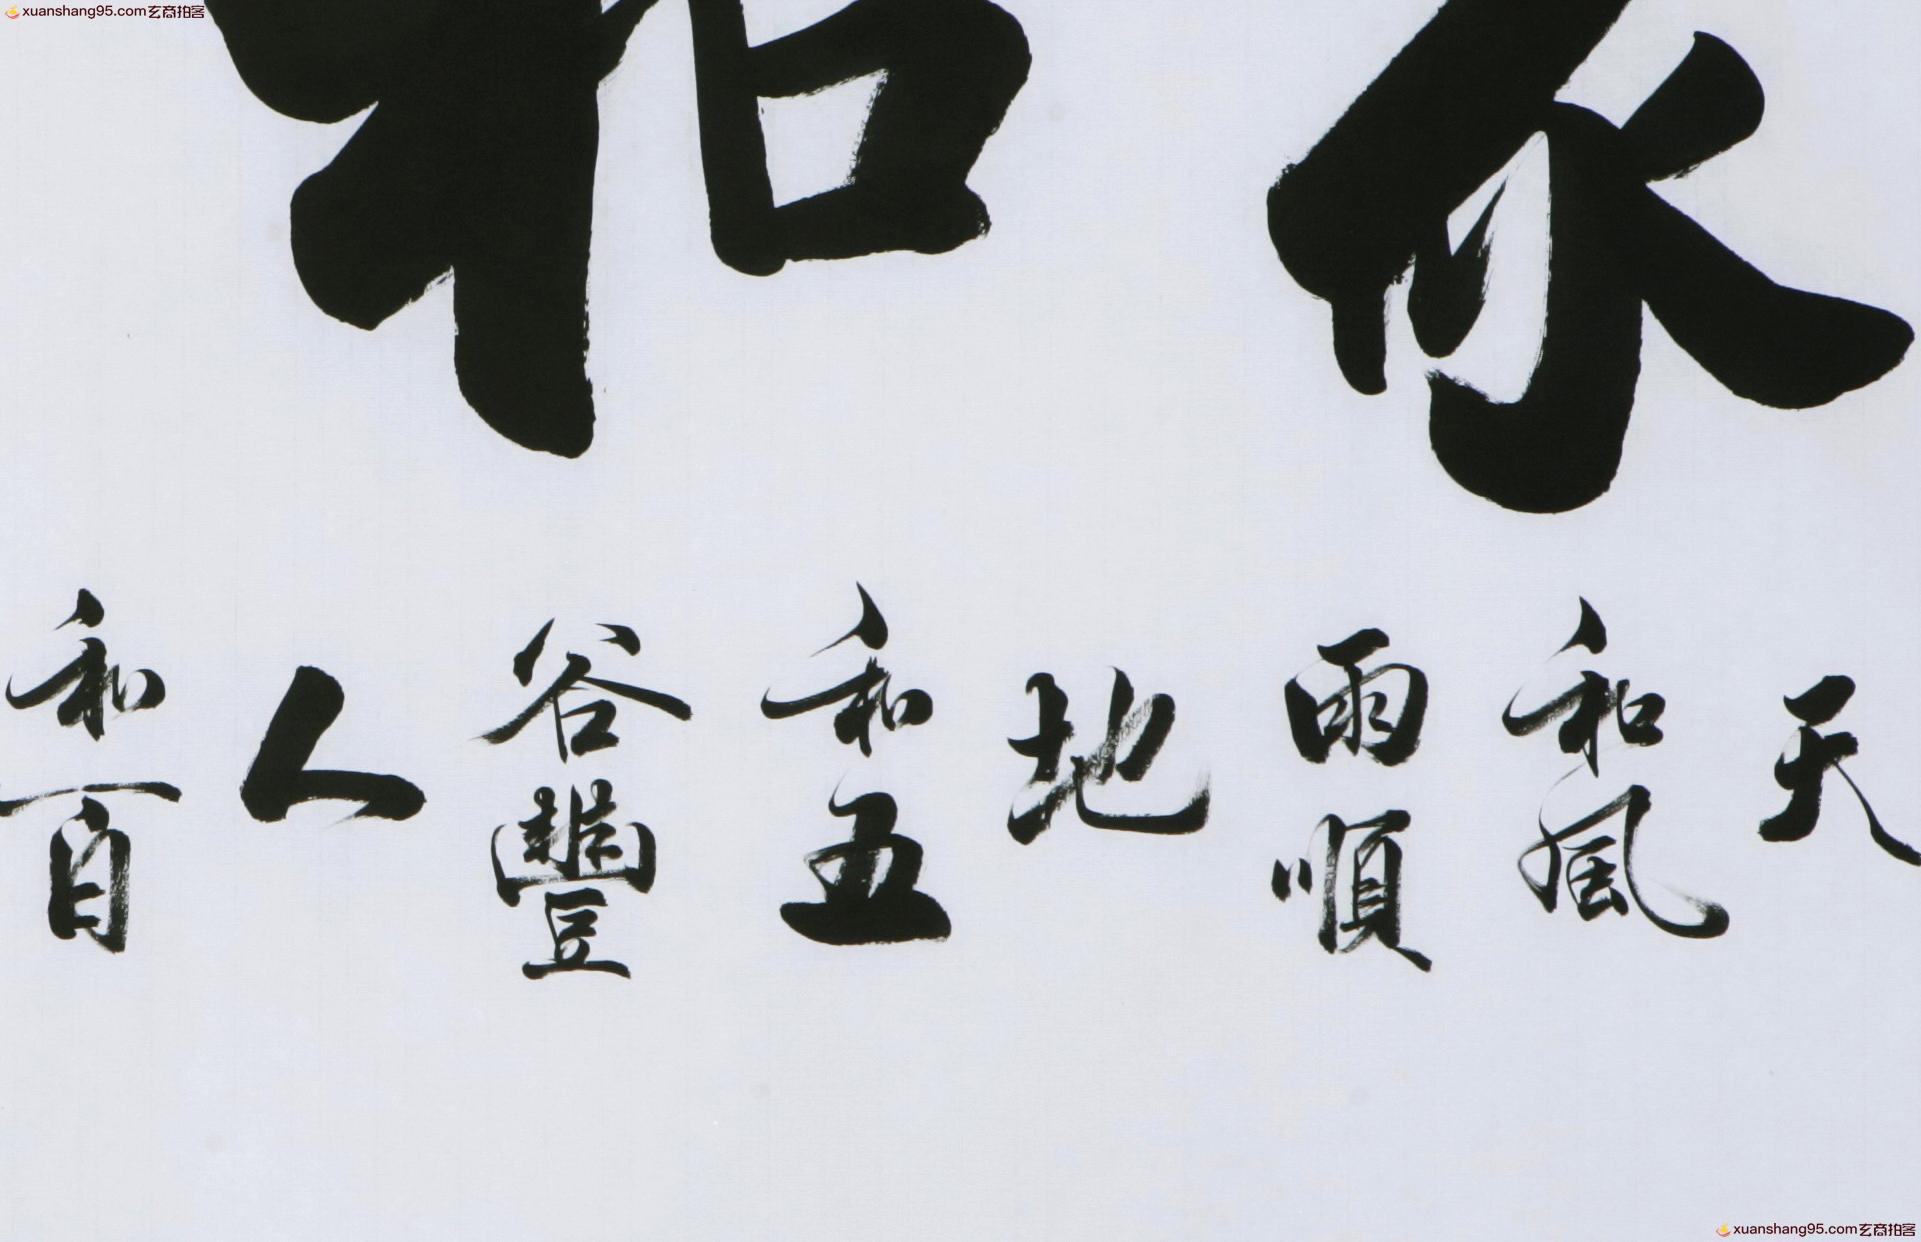 xuanshang95.com玄商拍客
和
天
和風
雨順
地
和五
谷豐
人
和百
xuanshang95.com玄商拍客